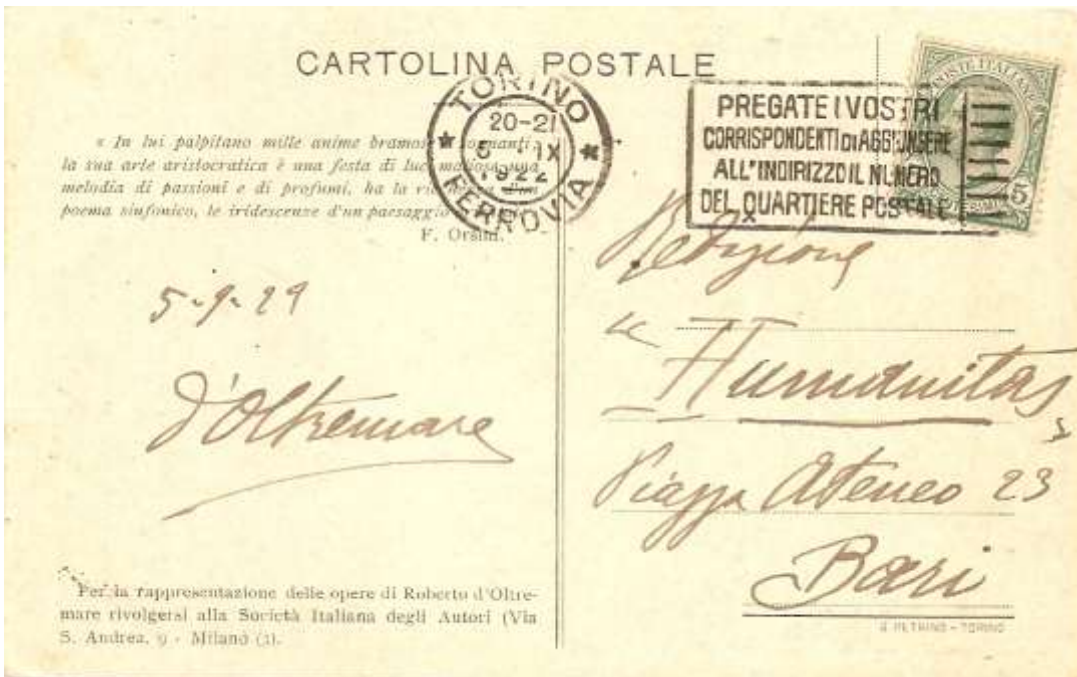 CARTOLINA POSTALE
TORINO
20-21
IX
1922
FERROVIA
PREGATE I VOSTRI
CORRISPONDENTI DI AGGIUNGERE
ALL'INDIRIZZO IL NUMERO
DEL QUARTIERE POSTALE
POSTE ITALIANE
5
« In lui palpitano mille anime bramose
la sua arte aristocratica è una festa di luci
melodia di passioni e di profumi, ha la d'un
poema sinfonico, le iridescenze d'un paesaggio
F. Orsini.
5-9-22
d'Oltremare
Per la rappresentazione delle opere di Roberto d'Oltre-
mare rivolgersi alla Società Italiana degli Autori (Via
S. Andrea, 9 - Milano (3).
Redazione
« Humanitas »
Piazza Ateneo 23
Bari
G. PETRINO - TORINO